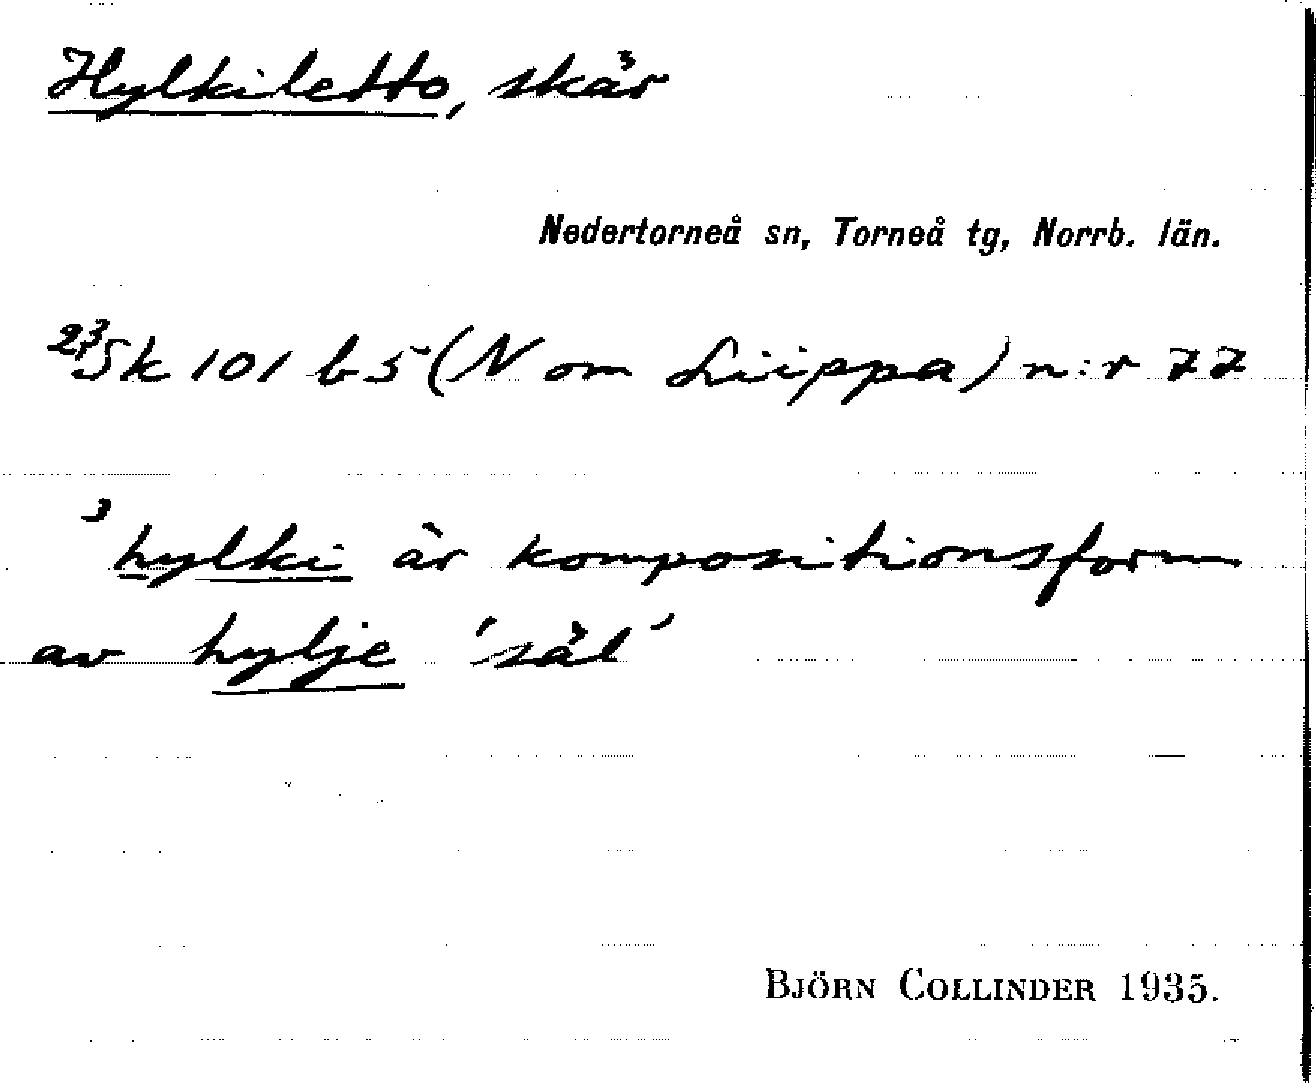 Hylkiletto, skär
Nedertorneå sn, Torneå tg, Norrb. län.
2,3 Sk 101 b5 (N om Liippa) n:r 77
3 hylki är kompositionsform
av hylje 'säl'
BJÖRN COLLINDER 1935.